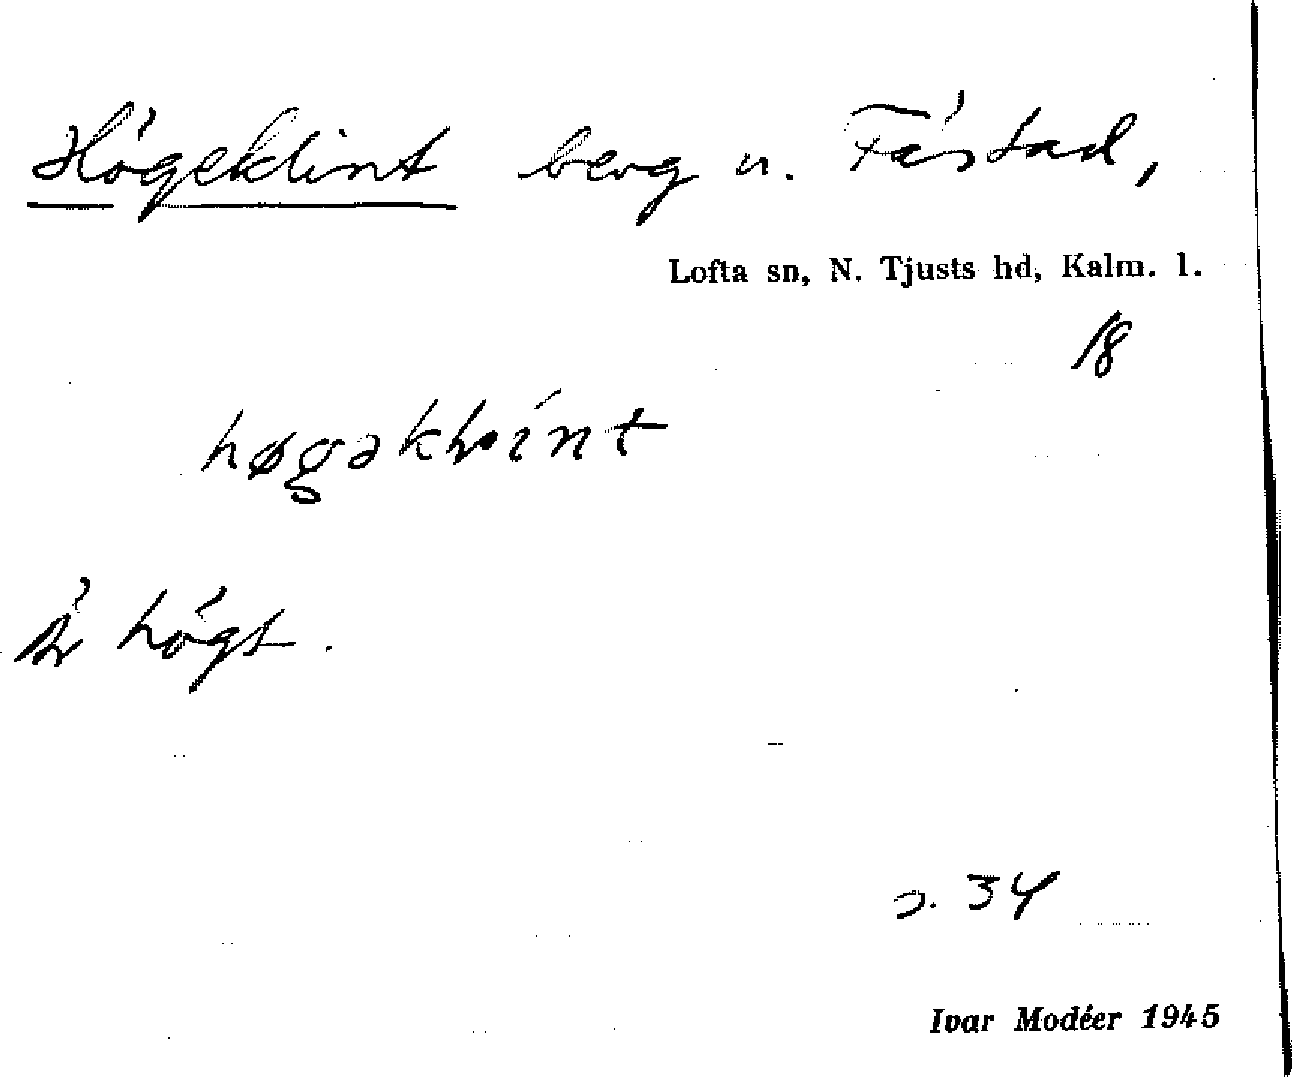 Högeklint berg n. Fästad,
Lofta sn, N. Tjusts hd, Kalm. l.
18
Är högt.
s. 34
Ivar Modéer 1945